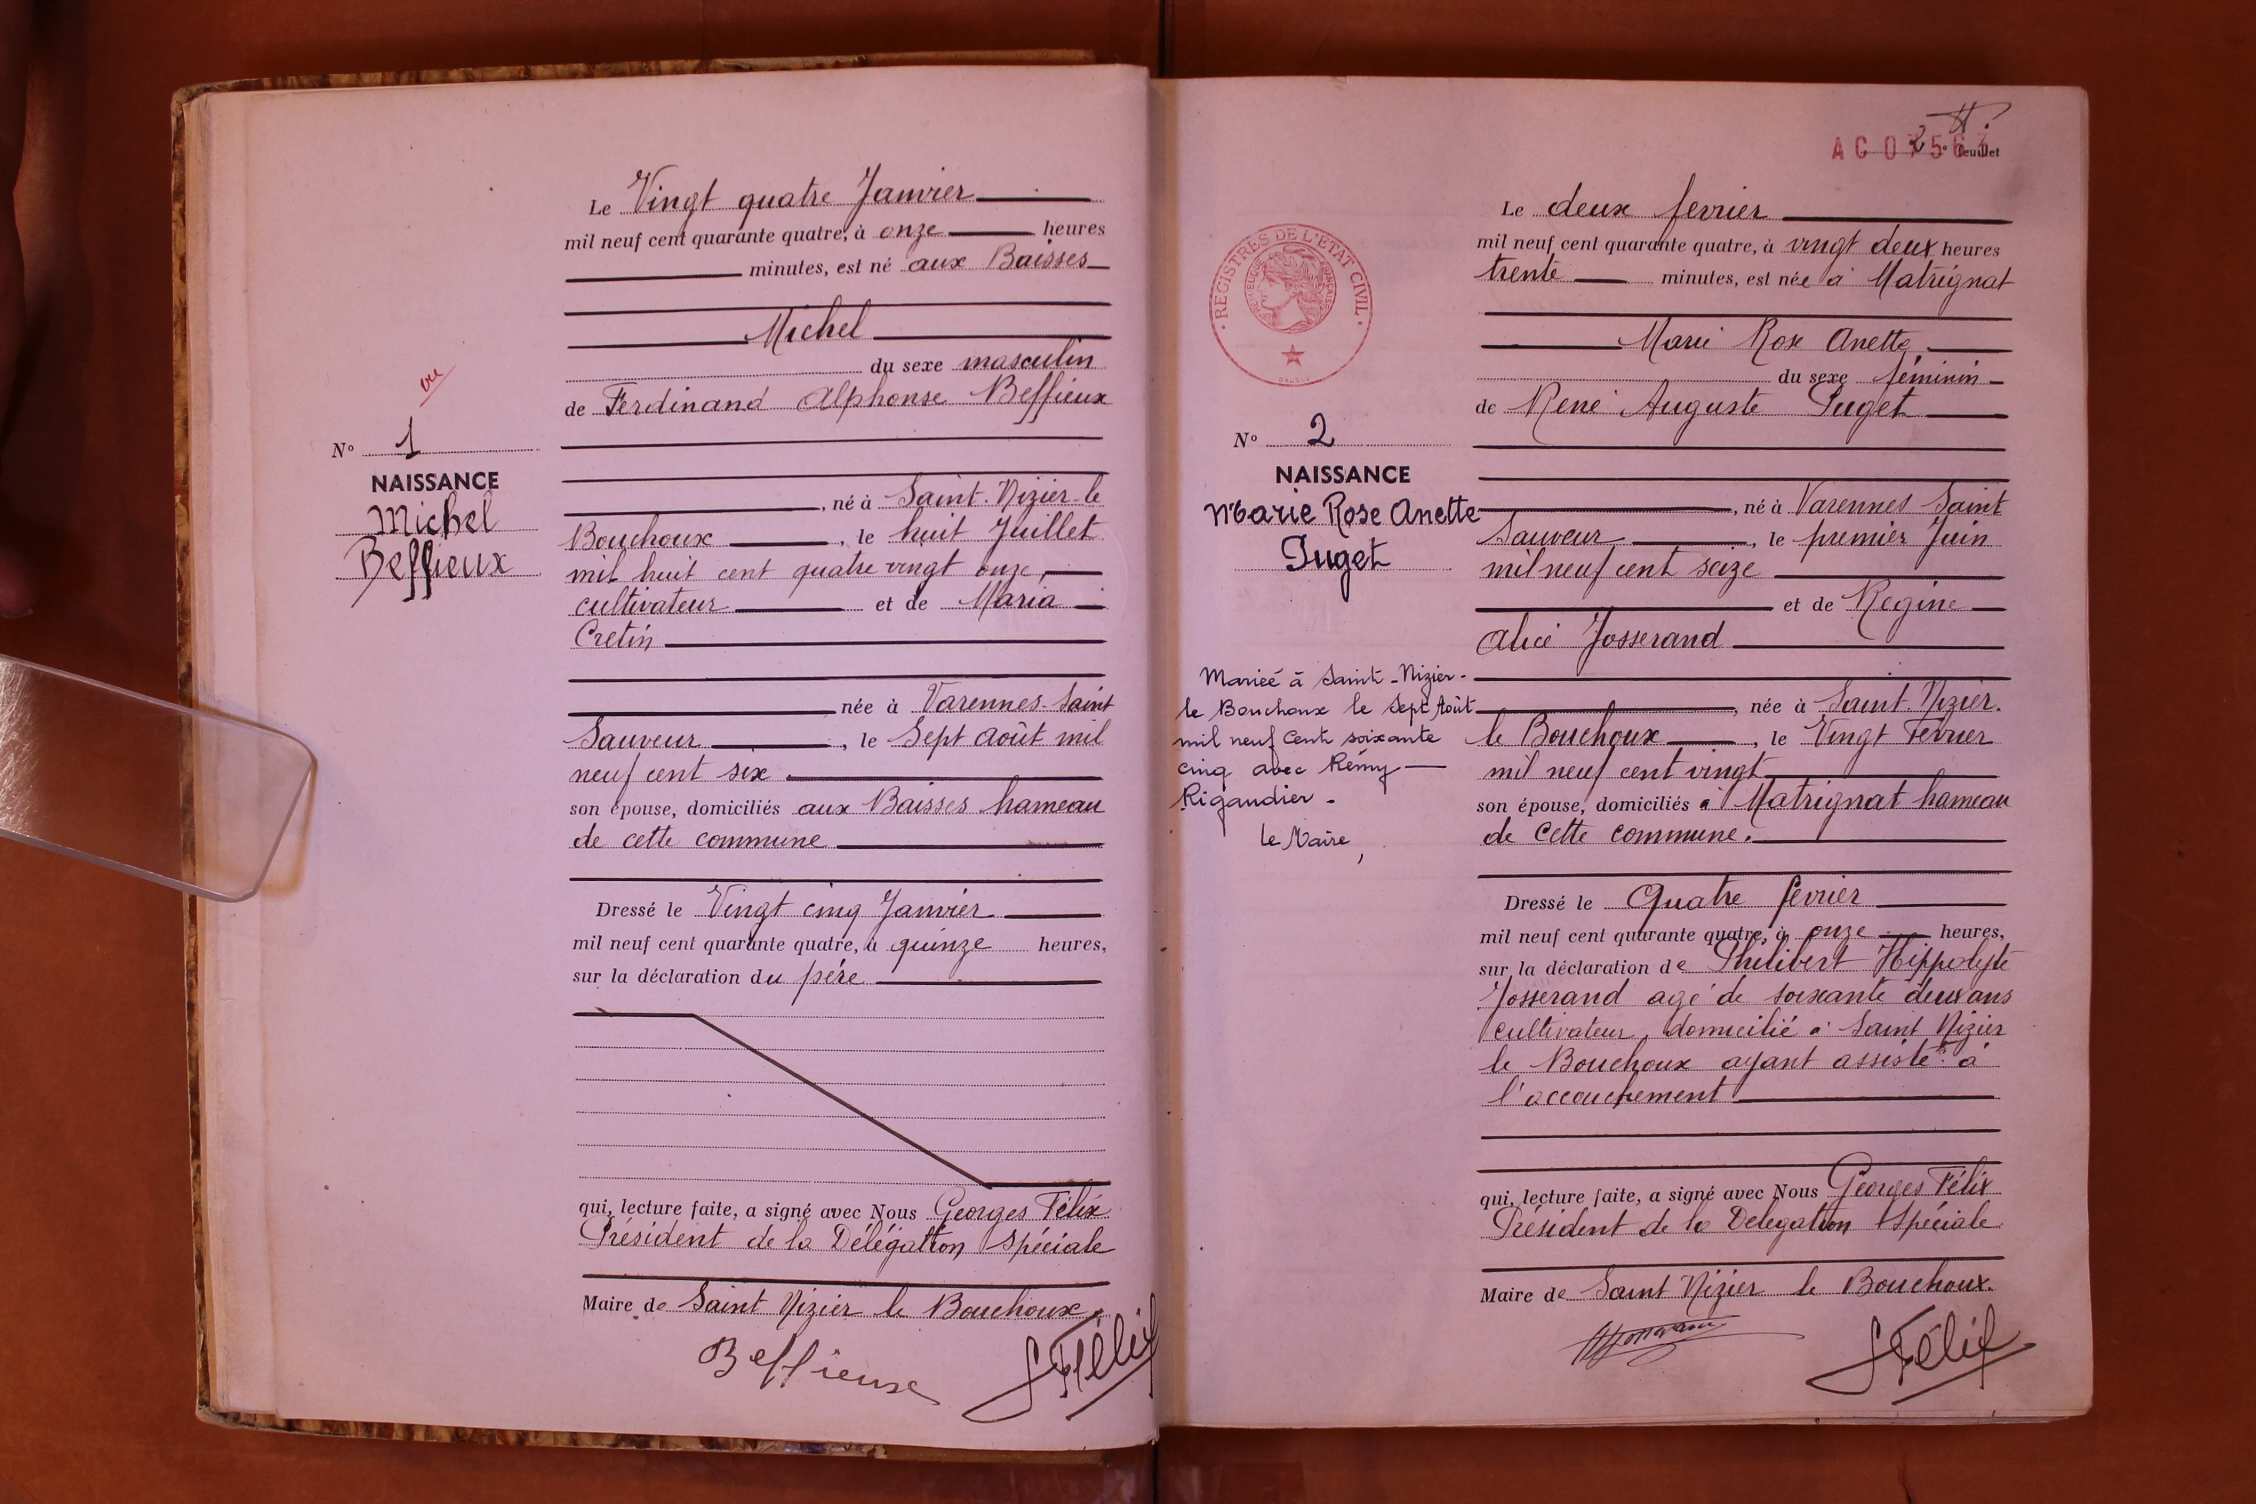 vu
N° 1
NAISSANCE
Michel
Beffieux
Le Vingt quatre Janvier
mil neuf cent quarante quatre, à onze heures
minutes, est né aux Baisses
Michel
du sexe masculin
de Ferdinand Alphonse Beffieux
, né à Saint-Nizier-le
Bouchoux , le huit Juillet
mil huit cent quatre vingt onze,
cultivateur et de Maria
Cretin
née à Varennes-Saint
Sauveur , le Sept août mil
neuf cent six
son épouse, domiciliés aux Baisses hameau
de cette commune
Dressé le Vingt cinq Janvier
mil neuf cent quarante quatre, à quinze heures,
sur la déclaration du père
qui, lecture faite, a signé avec Nous Georges Félix
Président de la Délégation Spéciale
Maire de Saint Nizier le Bouchoux.
Beffieux
GFélix
2e feuillet
REGISTRES DE L'ÉTAT CIVIL
N° 2
NAISSANCE
Marie Rose Anette
Puget
Mariée à Saint-Nizier-
le Bouchoux le Sept Août
mil neuf cent soixante
cinq avec Rémy
Rigaudier.
Le Maire,
Le deux fevrier
mil neuf cent quarante quatre, à vingt deux heures
trente minutes, est née à Matrignat
Marie Rose Anette
du sexe féminin
de René Auguste Puget
, né à Varennes Saint
Sauveur , le premier Juin
mil neuf cent seize
et de Régine
Alice Josserand
, née à Saint Nizier.
le Bouchoux , le Vingt Février
mil neuf cent vingt
son épouse, domiciliés à Matrignat hameau
de cette commune.
Dressé le Quatre fevrier
mil neuf cent quarante quatre, à onze heures,
sur la déclaration de Philibert Hippolyte
Josserand agé de soixante deux ans
cultivateur, domicilié à Saint Nizier
le Bouchoux ayant assisté à
l'accouchement
qui, lecture faite, a signé avec Nous Georges Félix
Président de la Délégation Spéciale
Maire de Saint Nizier le Bouchoux.
GFélix